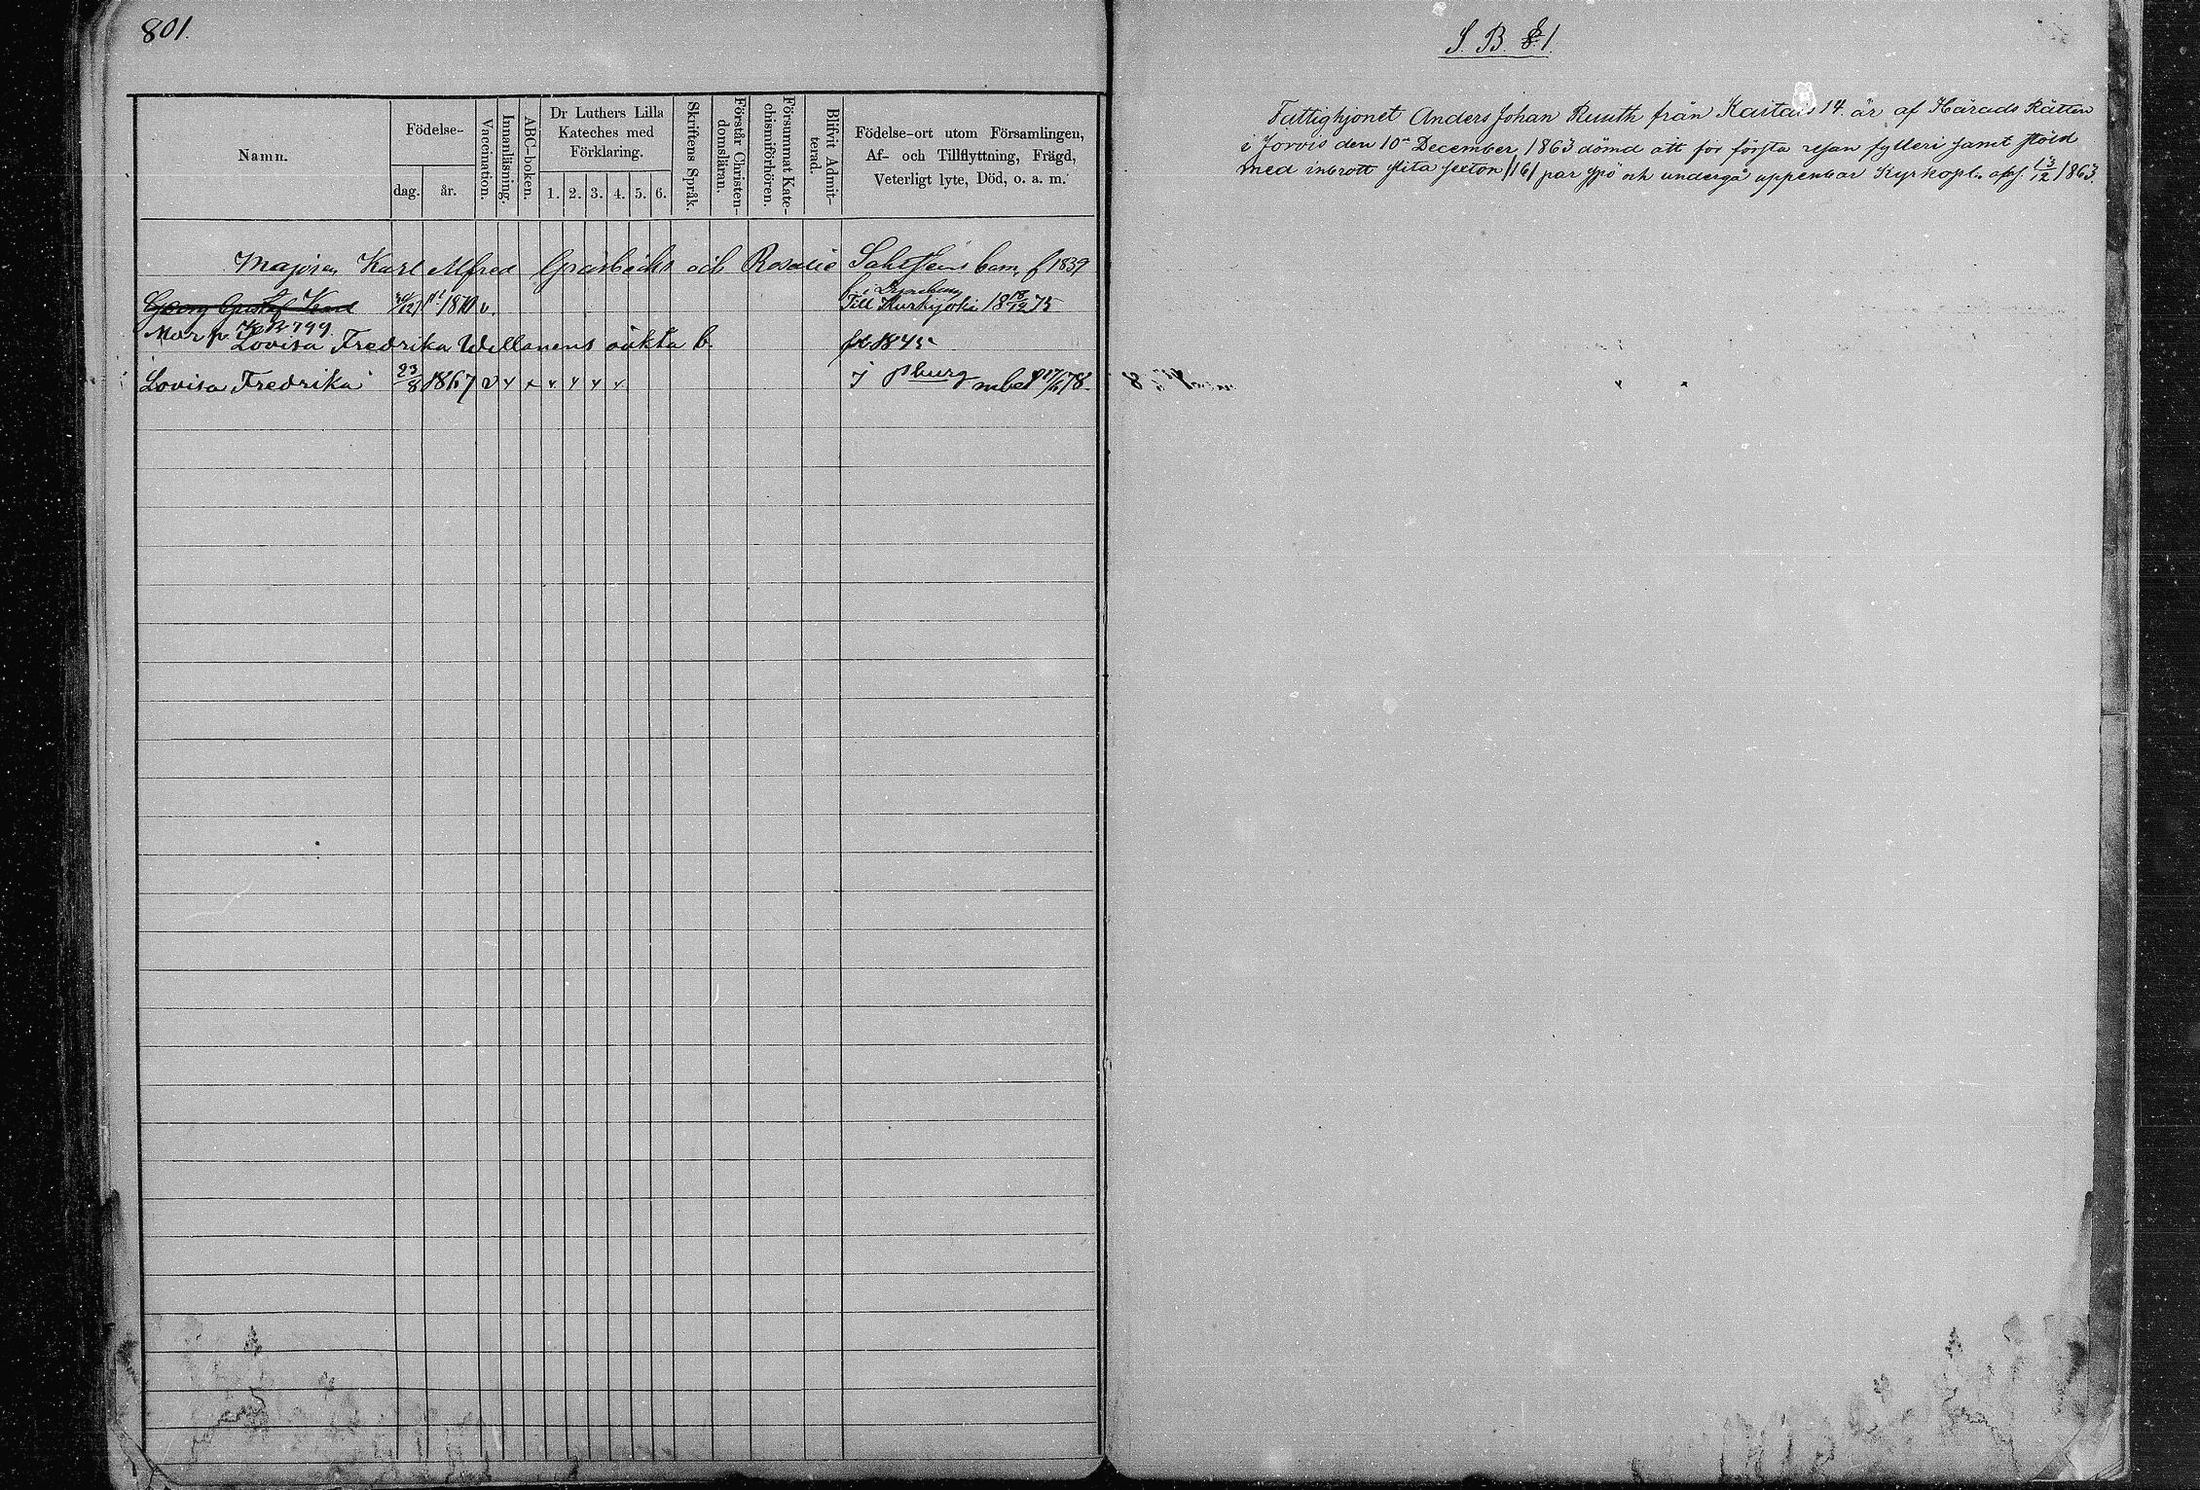 801.
Namn.
Födelse-
dag.
år.
Vaccination.
Innanläsning.
ABC-boken.
Dr Luthers Lilla
Kateches med
Förklaring.
1. 2. 3. 4. 5. 6.
Skriftens Språk.
Förstår Christen-
domsläran.
Försummat Kate-
chismiförhören.
Blifvit Admit-
terad.
Födelse-ort utom Församlingen,
Af- och Tillflyttning, Frägd,
Veterligt lyte, Död, o. a. m.
Majoren Karl Alfred och Rosalie barn, f 1839
Georg Gustaf Karl 1870 v. Till Kurkijoki 18 18/12 75
799
Lovisa Fredrika Willanens oäkta b. 1845
Lovisa Fredrika 23/8 1867 v v x v v v v 78
S. B. 1.
Fattighjonet Anders Johan Ruuth från 14. är af Härads Rätten
i Jorois den 10 December 1863 dömd att för första resan fylleri samt stöld
med inbrott slita sexton /16/ par spö och undergå uppenbar Kyrkopl. 13/12 1863.